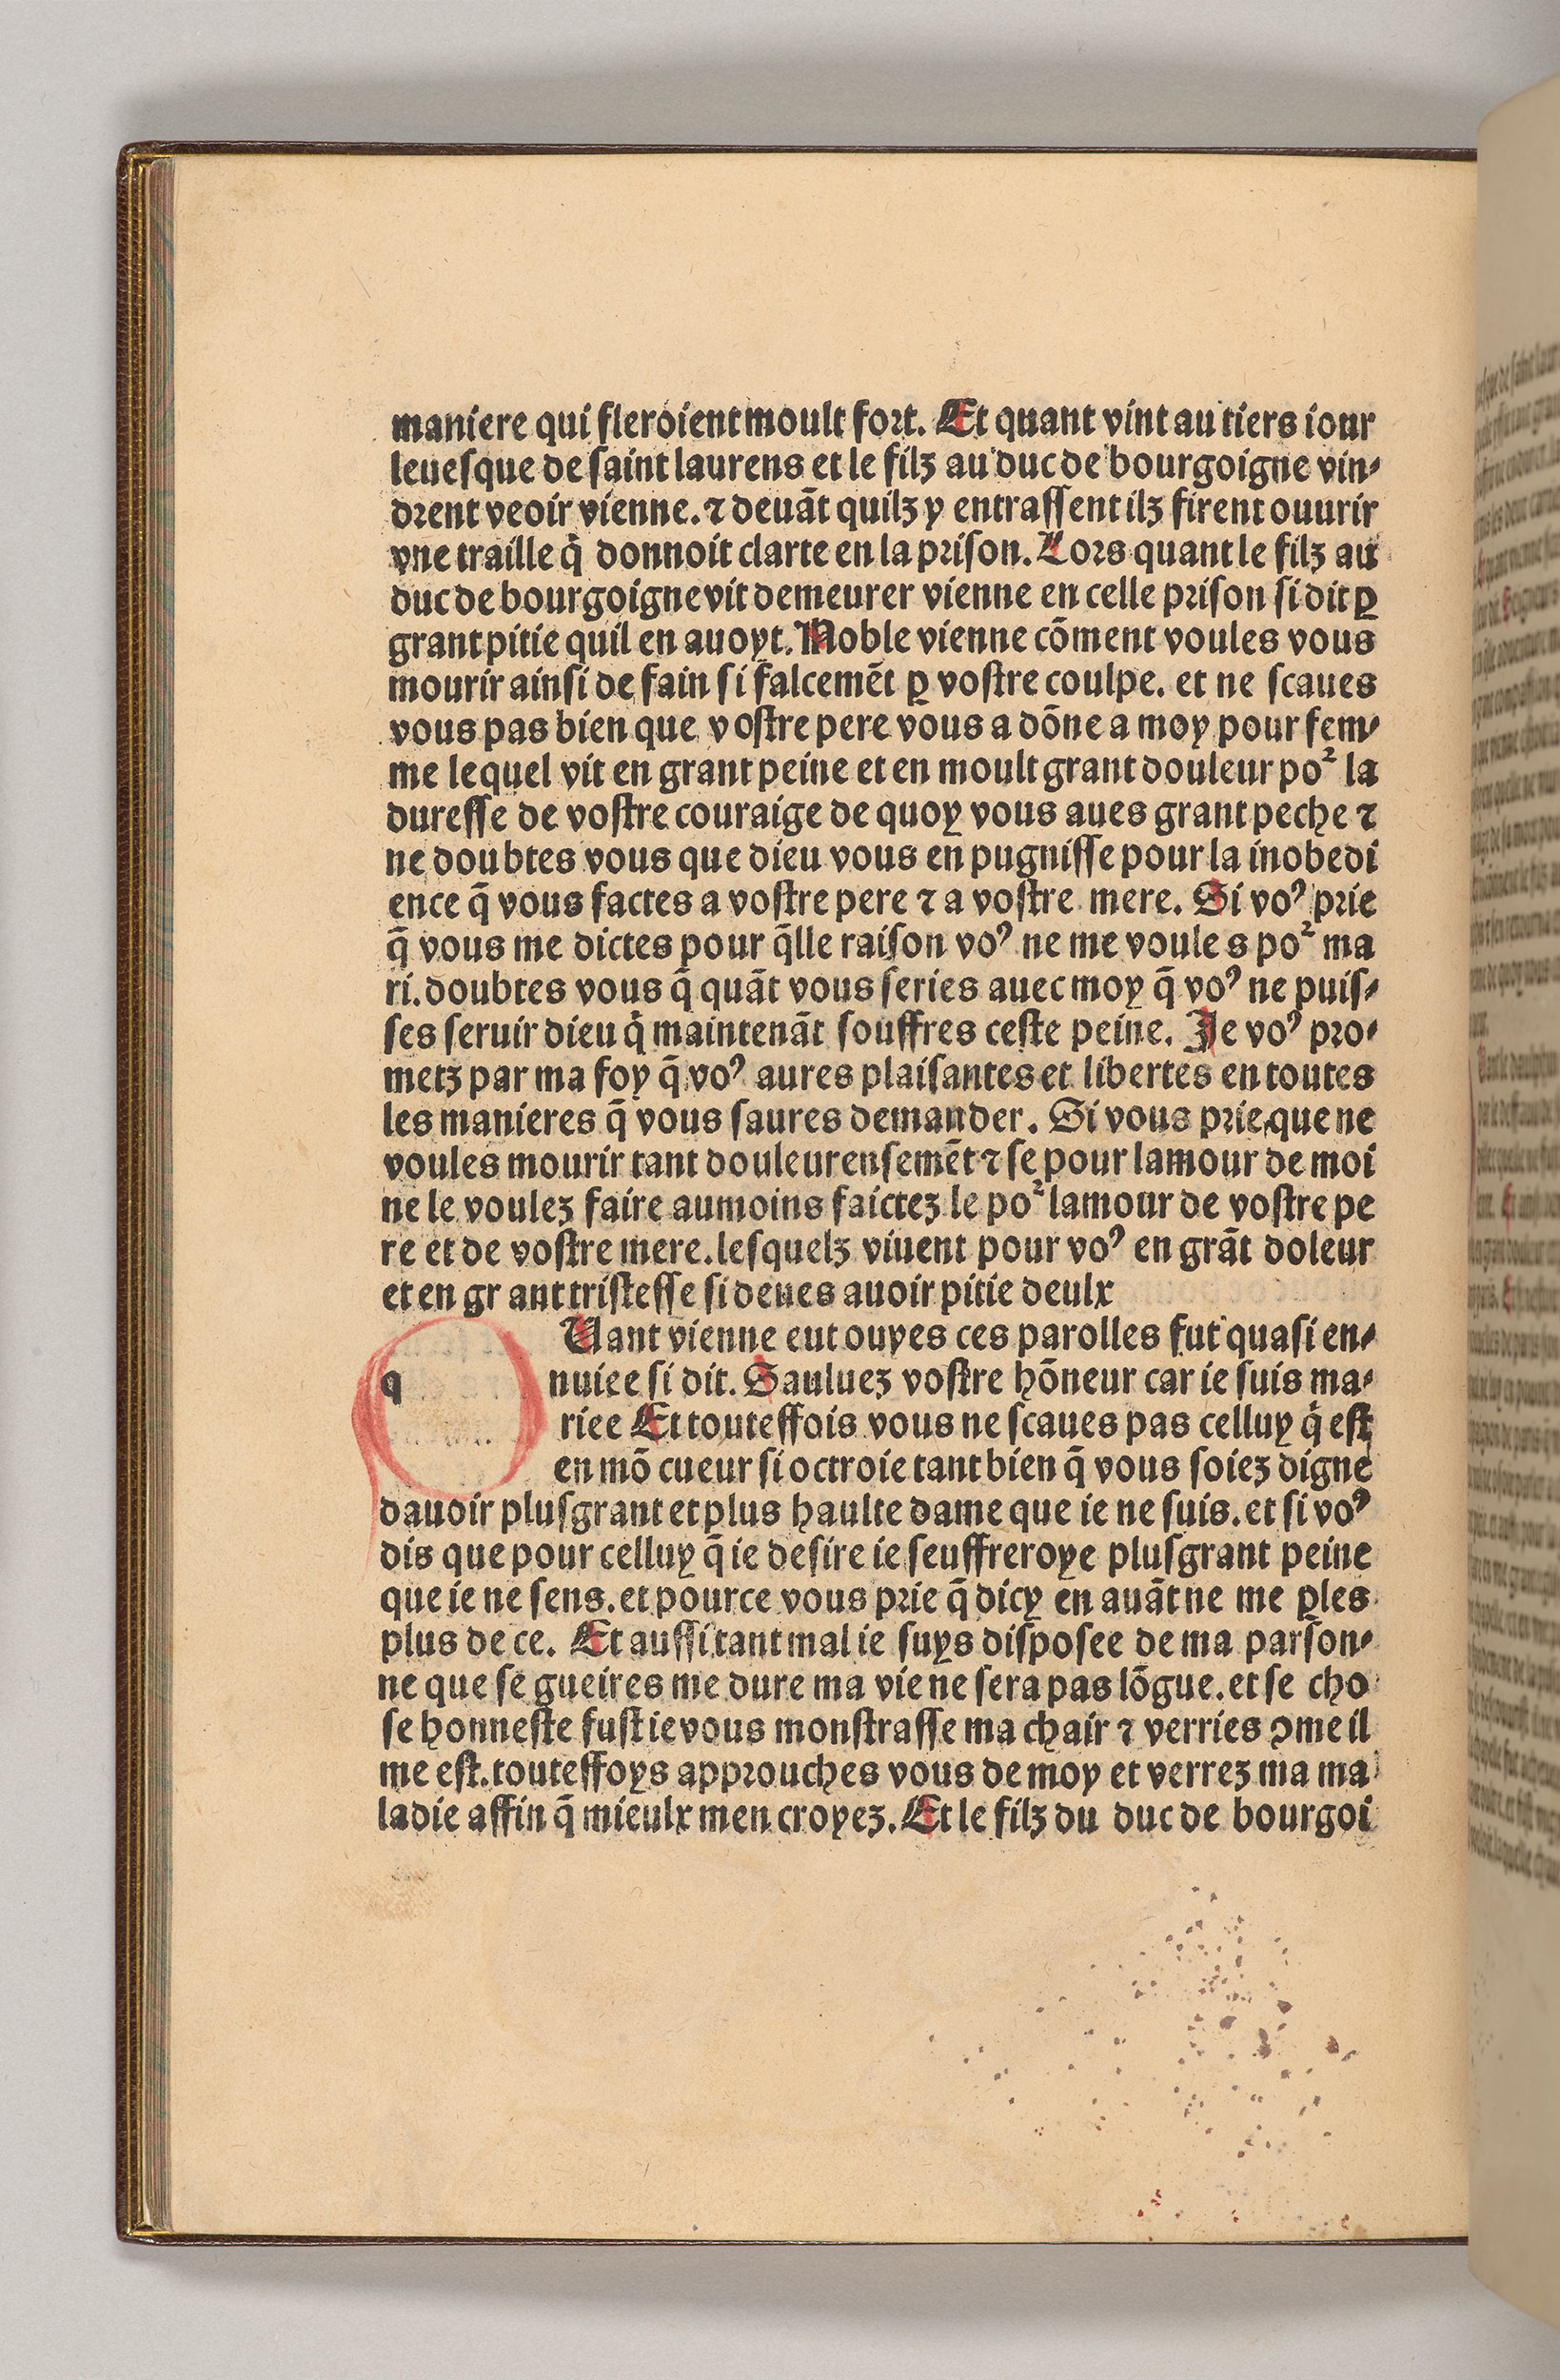 maniere qui fleroient moult fort. Et quant vint au tiers iour
leueſque de ſaint laurens et le filʒ au duc de bourgoigne vin⸗
drent veoir vienne. ⁊ deuāt quilʒ y entraſſent ilʒ firent ouurir
vne traille q̇ donnoit clarte en la priſon. Lors quant le filʒ au
duc de bourgoigne vit demeurer vienne en celle priſon ſi dit ꝑ
grant pitie quil en auoyt. Noble vienne cōment voules vous
mourir ainſi de fain ſi falcemēt ꝑ voſtre coulpe. et ne ſcaues
vous pas bien que voſtre pere vous a dōne a moy pour fem⸗
me lequel vit en grant peine et en moult grant douleur poᷣ la
dureſſe de voſtre couraige de quoy vous aues grant peche ⁊
ne doubtes vous que dieu vous en pugniſſe pour la inobedi
ence q̄ vous factes a voſtre pere ⁊ a voſtre mere. Si voꝰ prie
q̄ vous me dictes pour q̄lle raiſon voꝰ ne me voules poᷣ ma
ri. doubtes vous q̄ quāt vous ſeries auec moy q̄ voꝰ ne puiſ⸗
ſes ſeruir dieu q̇ maintenāt ſouffres ceſte peine. Je voꝰ pro⸗
metʒ par ma foy q̄ voꝰ aures plaiſantes et libertes en toutes
les manieres q̄ vous ſaures demander. Si vous prie que ne
voules mourir tant douleurenſemēt ⁊ ſe pour lamour de moi
ne le vouleʒ faire aumoins faicteʒ le poᷣ lamour de voſtre pe
re et de voſtre mere. leſquelʒ viuent pour voꝰ en grāt doleur
et en gr ant triſteſſe ſi deues auoir pitie deulx
q Uant vienne eut ouyes ces parolles fut quaſi en⸗
nuiee ſi dit. Saulueʒ voſtre hōneur car ie ſuis ma⸗
riee Et touteffois vous ne ſcaues pas celluy q̇ eſt
en mō cueur ſi octroie tant bien q̄ vous ſoieʒ digne
dauoir pluſgrant et plus haulte dame que ie ne ſuis. et ſi voꝰ
dis que pour celluy q̄ ie deſire ie ſeuffreroye pluſgrant peine
que ie ne ſens. et pource vous prie q̄ dicy en auāt ne me ꝑles
plus de ce. Et auſſi tant mal ie ſuys diſpoſee de ma parſon⸗
ne que ſe gueires me dure ma vie ne ſera pas lōgue. et ſe cho
ſe honneſte fuſt ie vous monſtraſſe ma chair ⁊ verries ꝯme il
me eſt. touteffoys approuches vous de moy et verreʒ ma ma
ladie affin q̄ mieulx men croyeʒ. Et le filʒ du duc de bourgoi